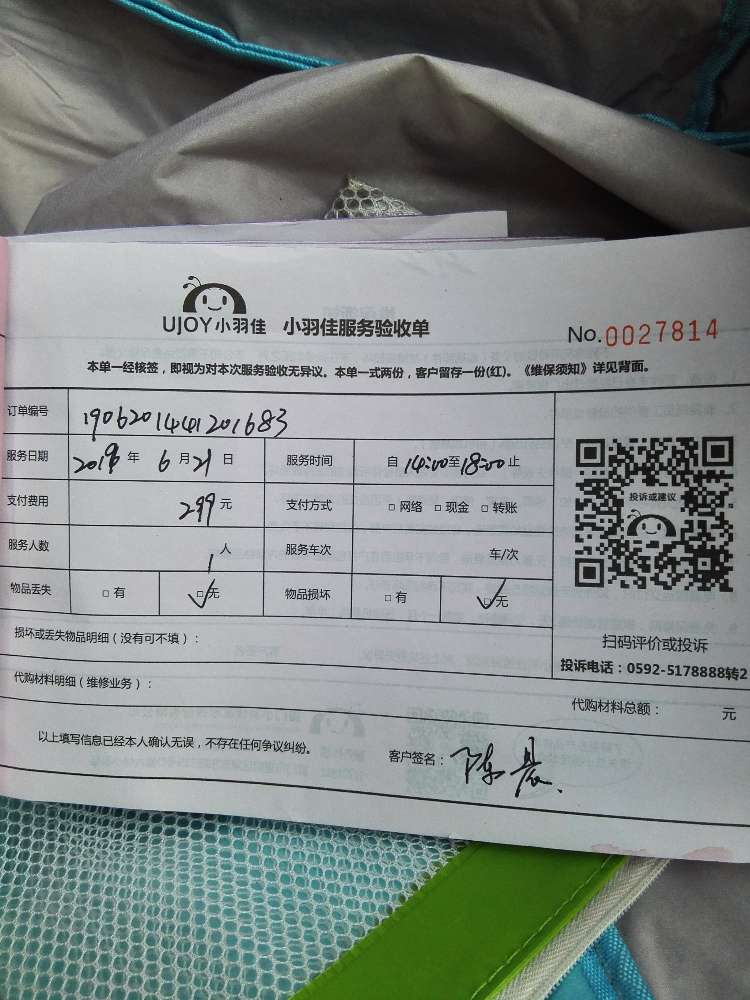 UJOY小羽佳 小羽佳服务验收单
No.0027814
本单一经核签，即视为对本次服务验收无异议。本单一式两份，客户留存一份(红)。《维保须知》详见背面。
订单编号 1906201441201683
服务日期 2019年 6月21日 服务时间 自 14:00至18:00止
投诉或建议
支付费用 299元 支付方式 □网络 □现金 □转账
服务人数 1人 服务车次 车/次
物品丢失 □有 ☑无 物品损坏 □有 ☑无
扫码评价或投诉
投诉电话：0592-5178888转2
损坏或丢失物品明细（没有可不填）：
代购材料明细（维修业务）：
代购材料总额： 元
以上填写信息已经本人确认无误，不存在任何争议纠纷。
客户签名：陈晨